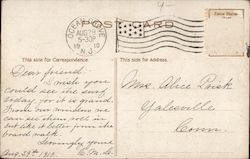 POST CARD
OCEAN GROVE
AUG 29
5-30P
1910
N.J.
This side for Correspondence.
This side for Address.
Dear friend.
I wish you
could see the surf
today, for it is grand.
From our window we
can see them roll in
but like it better from the
board walk.
Lovingly yours
Aug. 29th 1910.
Miss. Alice Prisk
Yalesville
Conn.